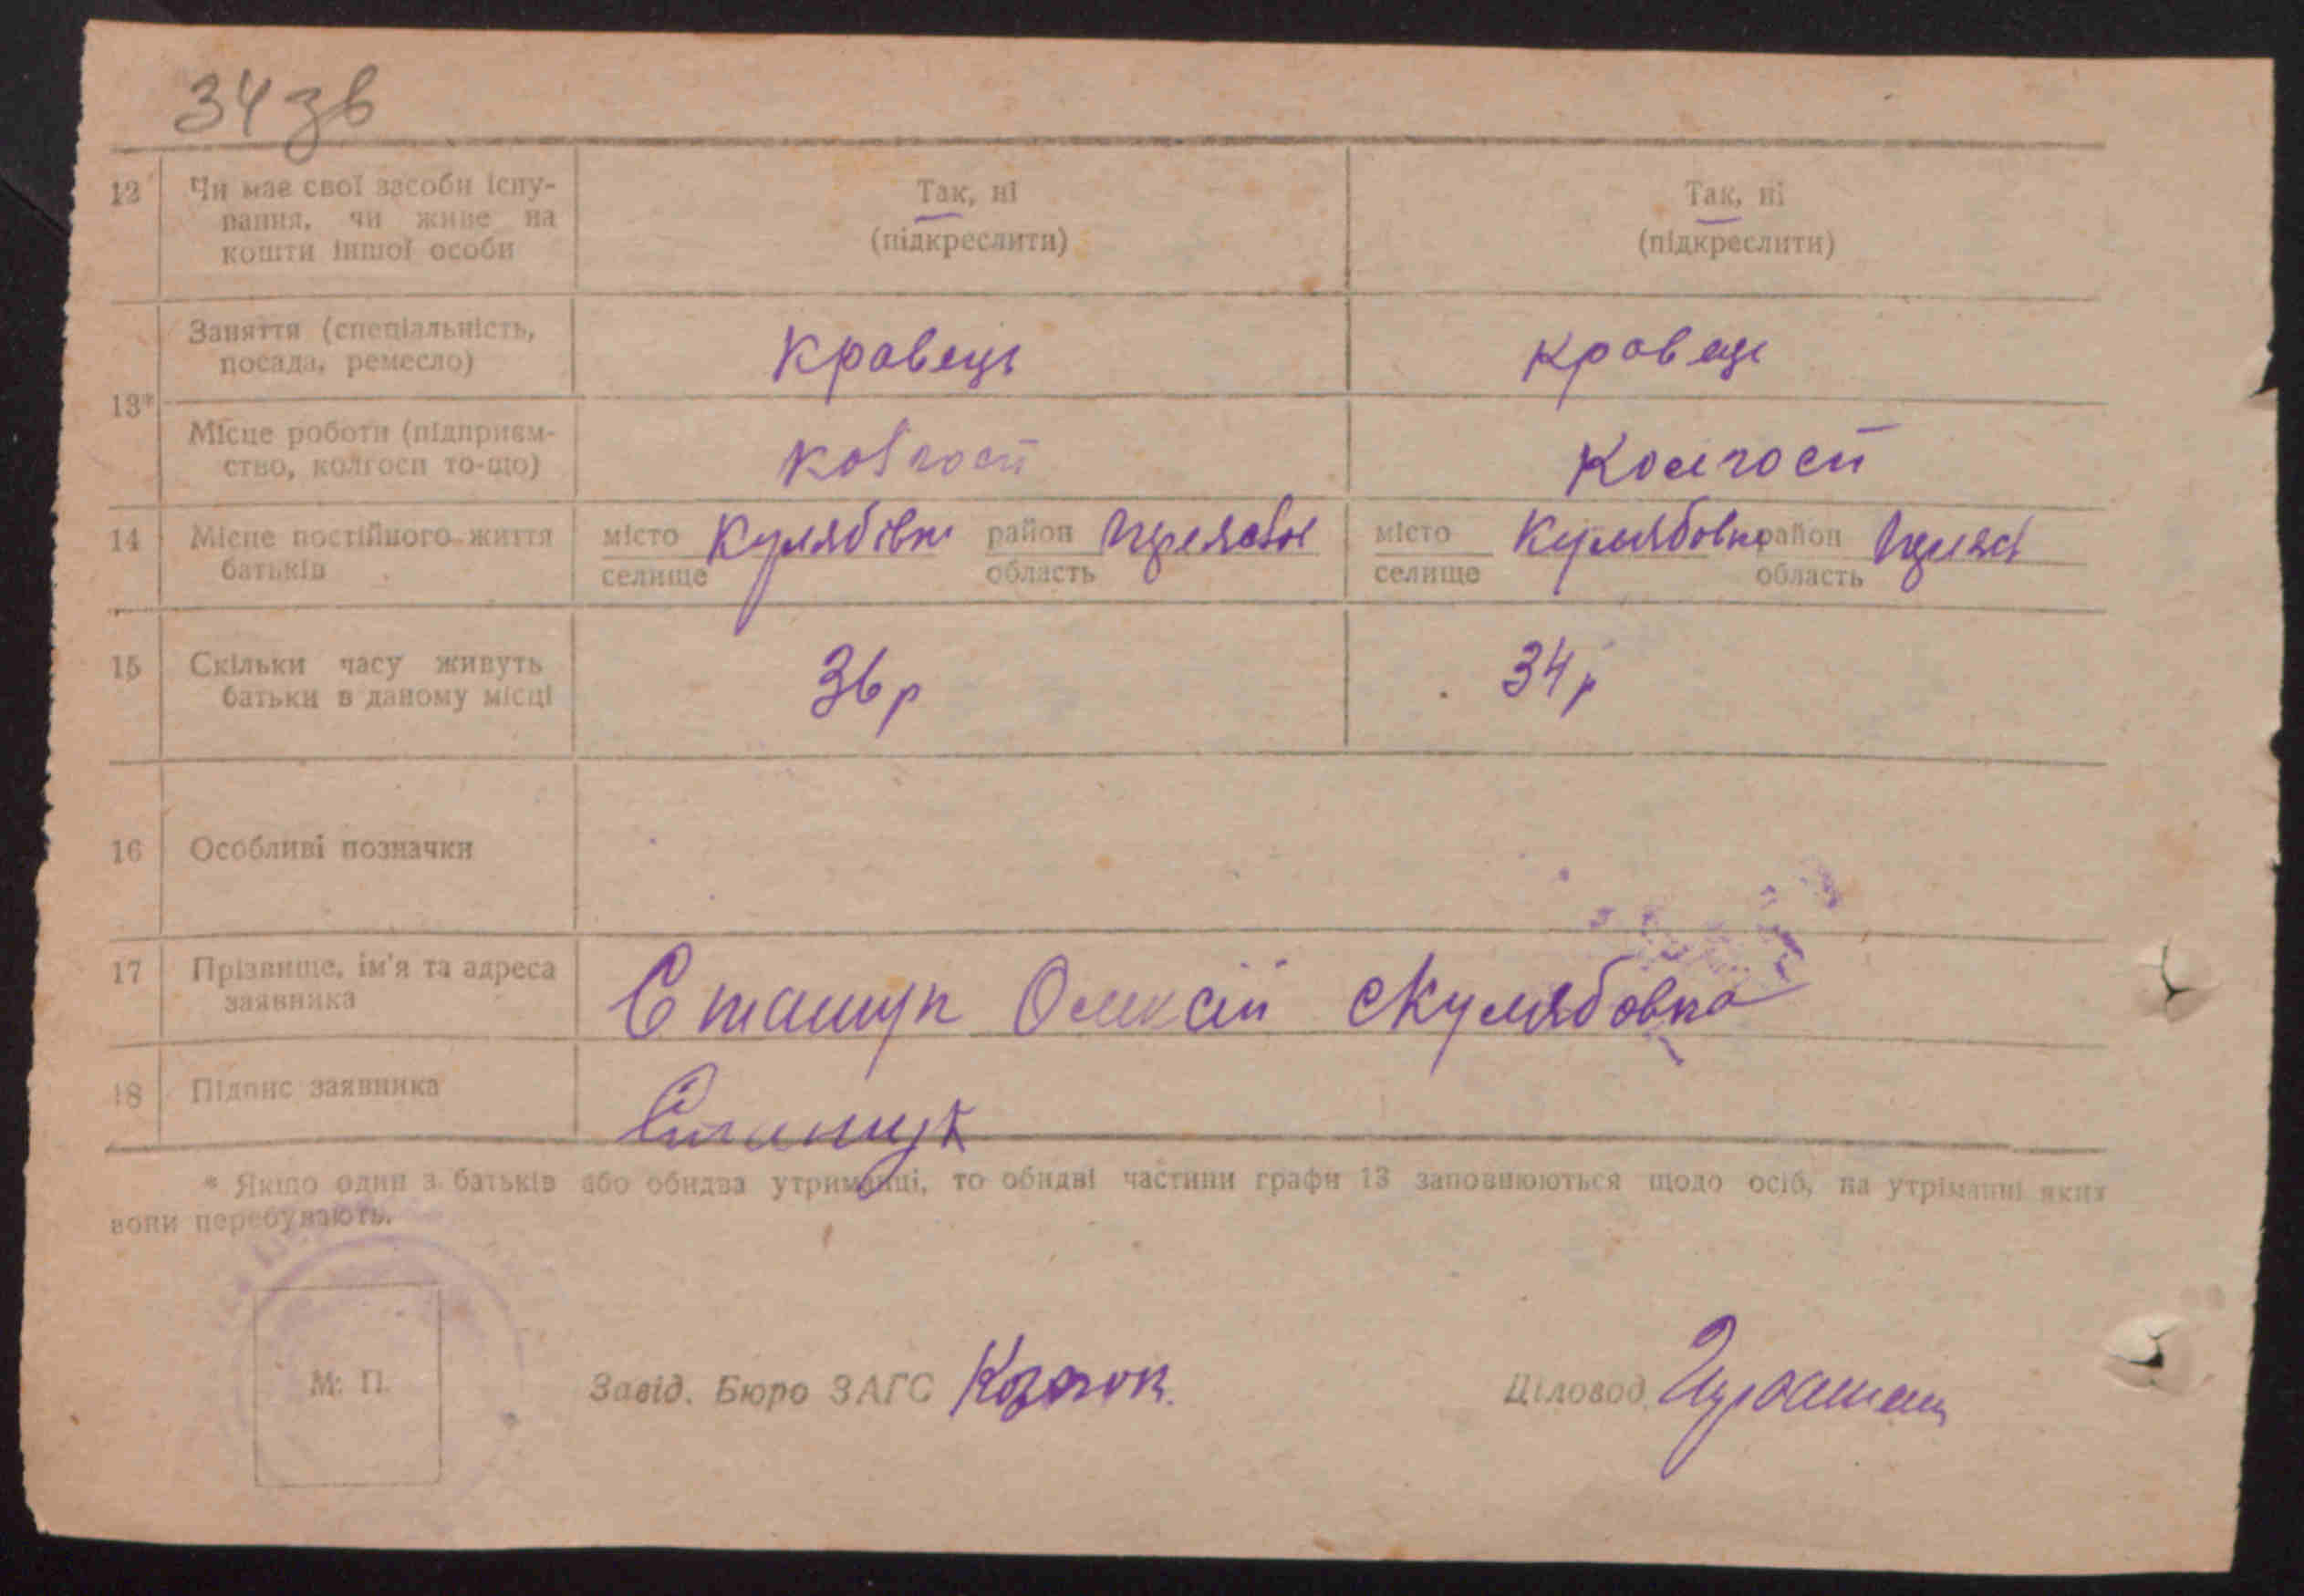 34 зв
12 Чи має свої засоби існу- Так, ні Так, ні
вання, чи живе на (підкреслити) (підкреслити)
кошти іншої особи
Заняття (спеціальність, Кравець Кравець
посада, ремесло)
13*
Місце роботи (підприєм- Колгосп Колгосп
ство, колгосп то-що)
14 Місце постійного життя місто Кулябівка район місто Кулябовка район
батьків селище область селище область
15 Скільки часу живуть 36 р 34 р
батьки в даному місці
16 Особливі позначки
17 Прізвище, ім'я та адреса Сташук Олексій с Кулябовка
заявника
18 Підпис заявника Сташук
* Якщо один з батьків або обидва утриманці, то обидві частини графи 13 заповнюються щодо осіб, на утріманні яких
вони перебувають.
М. П. Завід. Бюро ЗАГС Козачок. Діловод